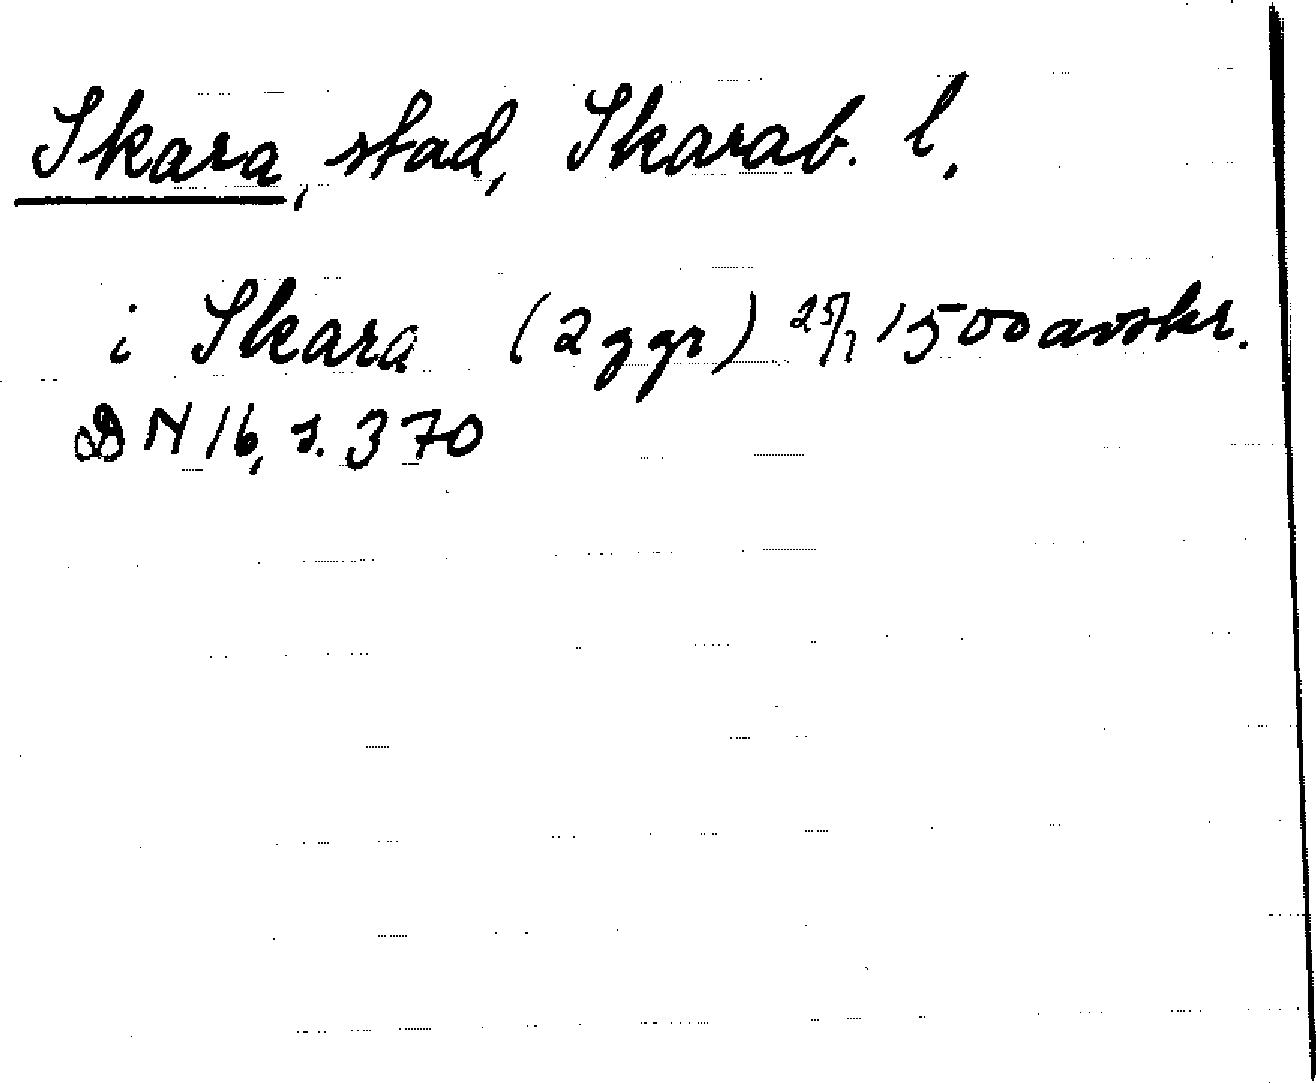 Skara, stad, Skarab. l.
i Skara (2 ggr) 25/7 1500 avskr.
DN 16, s. 370